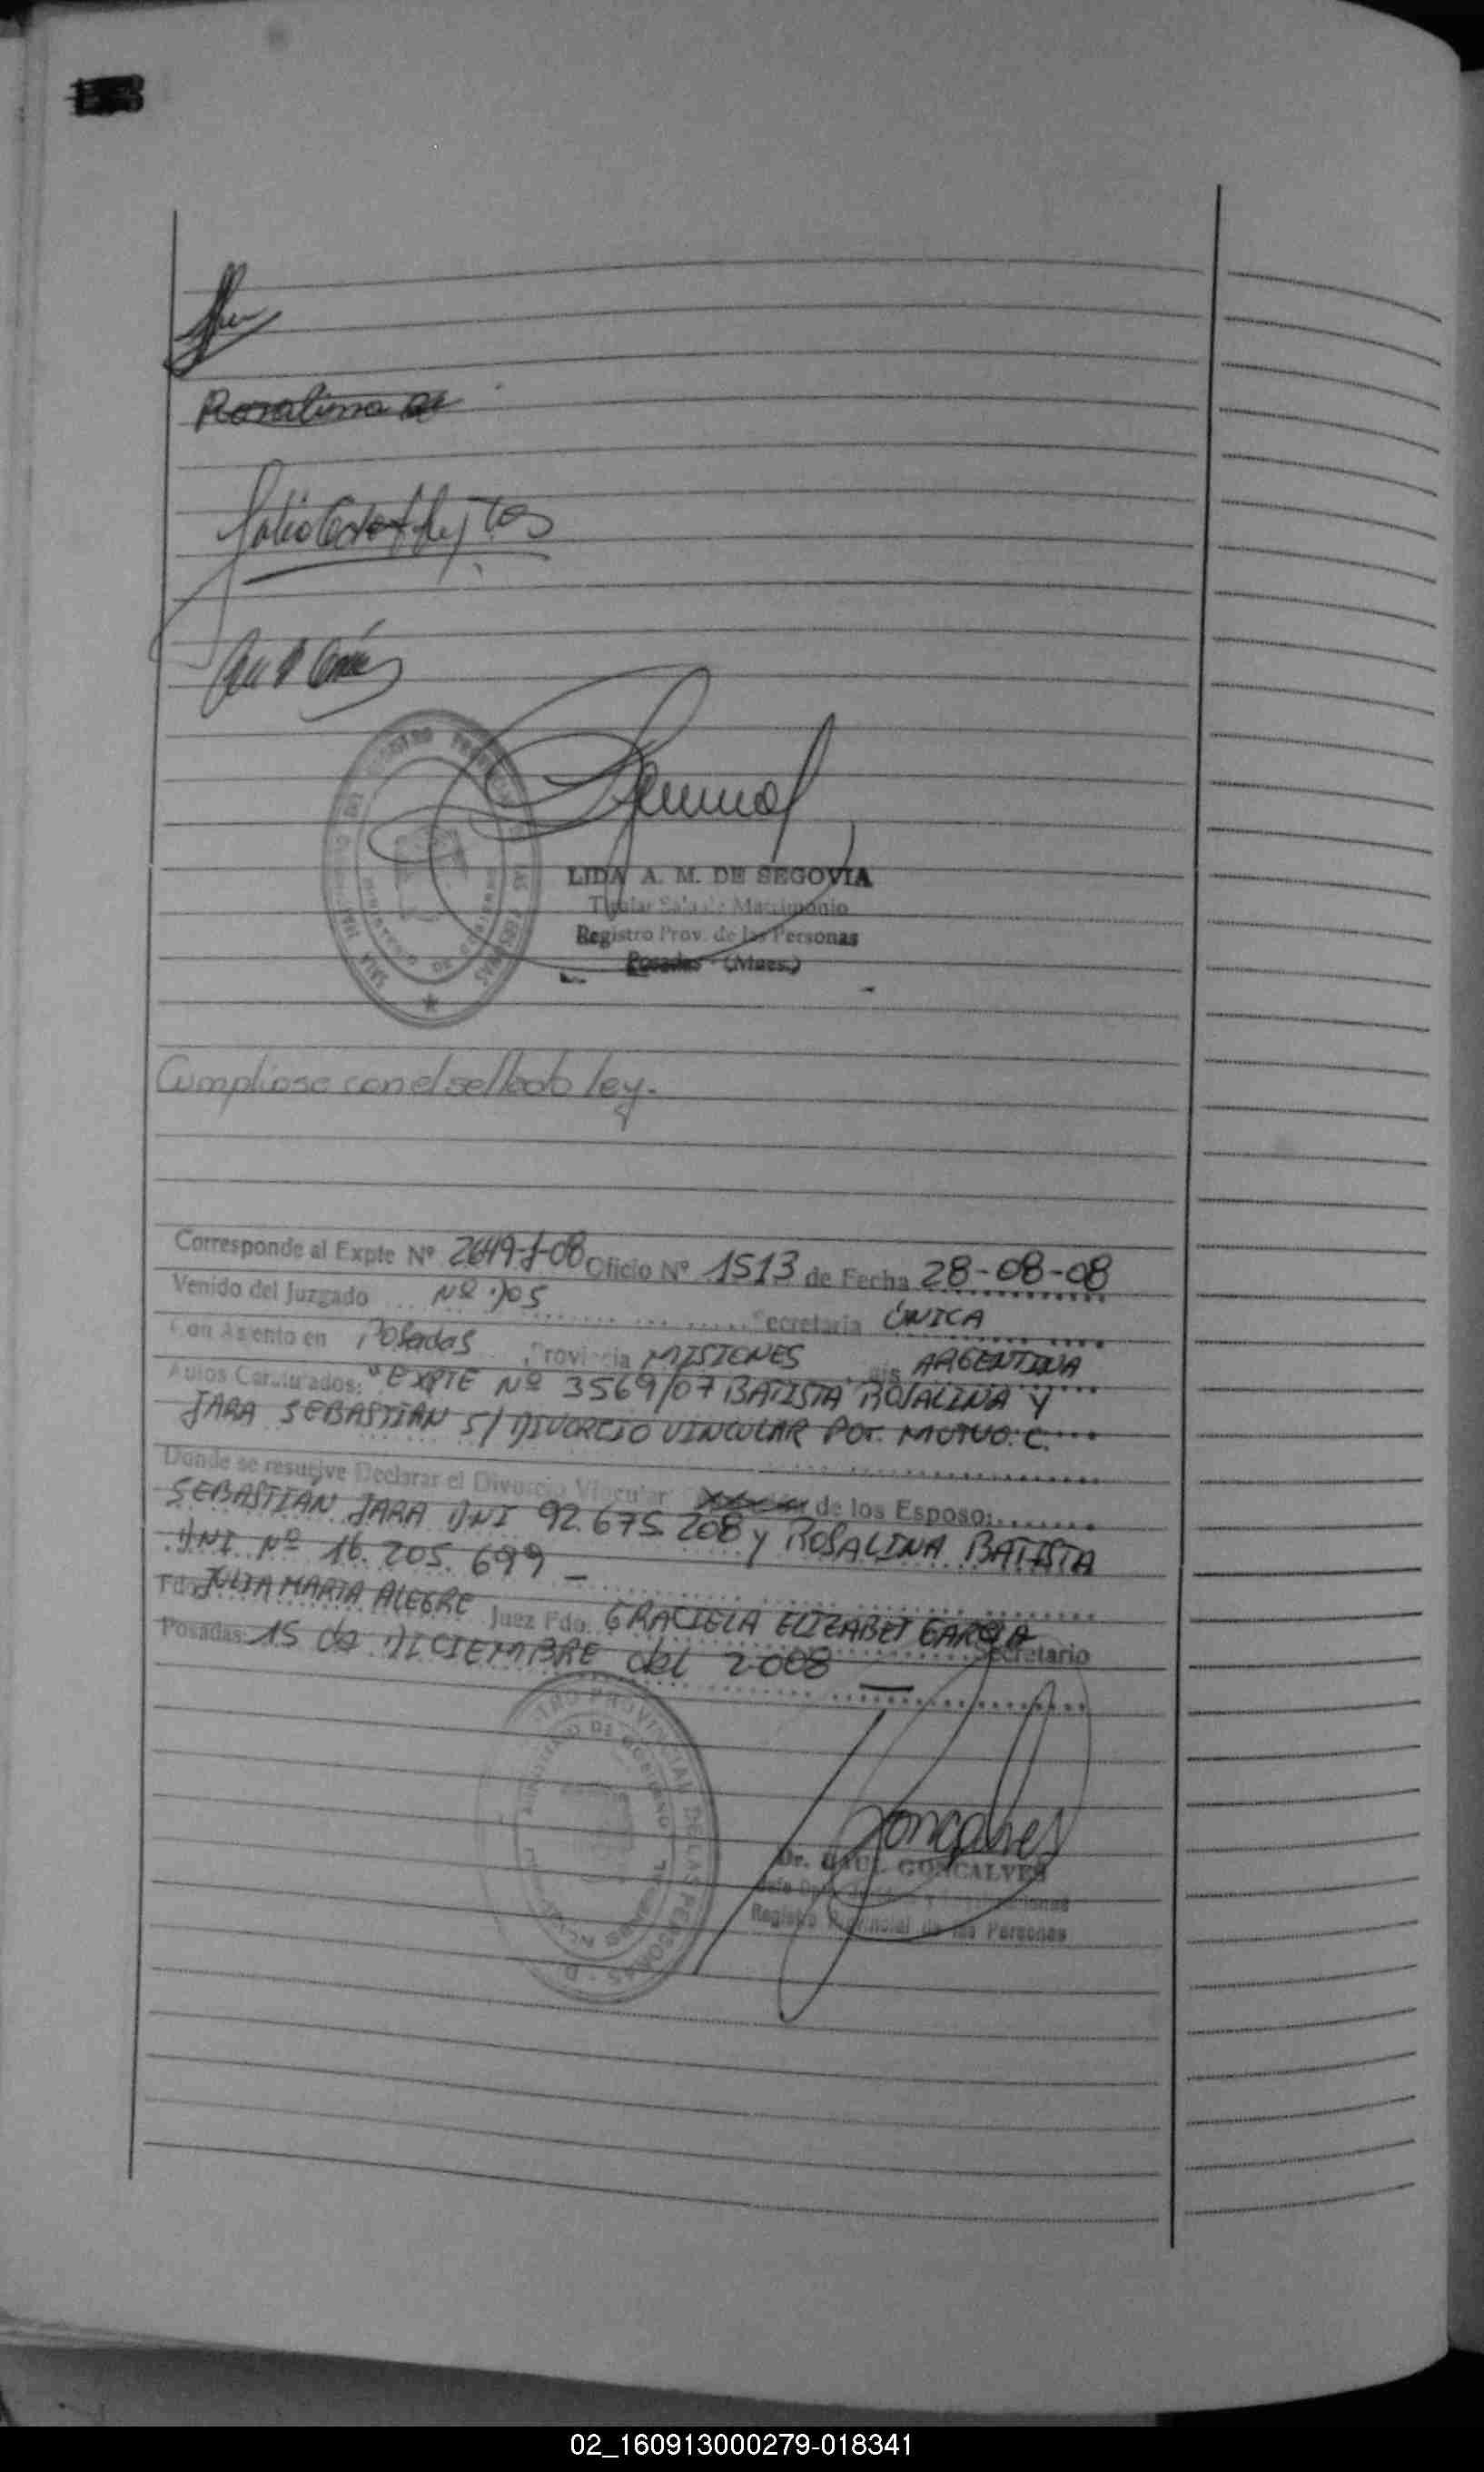 Rosalina
LIDA A. M. DE SEGOVIA
Titular Sala de Matrimonio
Registro Prov. de las Personas
Posadas (Mnes.)
Cumpliose con el sellado ley.
Corresponde al Expte Nº 2649-J-08 Oficio Nº 1513 de Fecha 28-08-08
Venido del Juzgado Nº 05 Secretaria ÚNICA
Con Asiento en Posadas Provincia MISIONES País ARGENTINA
Autos Caratulados: "EXPTE Nº 3569/07 BATISTA ROSALINA Y
JARA SEBASTIÁN S/ DIVORCIO VINCULAR POr. MUTUO. C.
Donde se resuelve Declarar el Divorcio Vincular de los Esposo:
SEBASTIÁN JARA DNI 92.675.208 y ROSALINA BATISTA
DNI Nº 16.205.699 -
Fdo. JULIA MARIA ALEGRE Juez Fdo. GRACIELA ELIZABET GARCIA
Secretario
Posadas: 15 de DICIEMBRE del 2008 —
REGISTRO PROVINCIAL DE LAS PERSONAS
MINISTERIO DE GOBIERNO
Dr. RAUL GONCALVES
Registro Provincial de las Personas
02_160913000279-018341